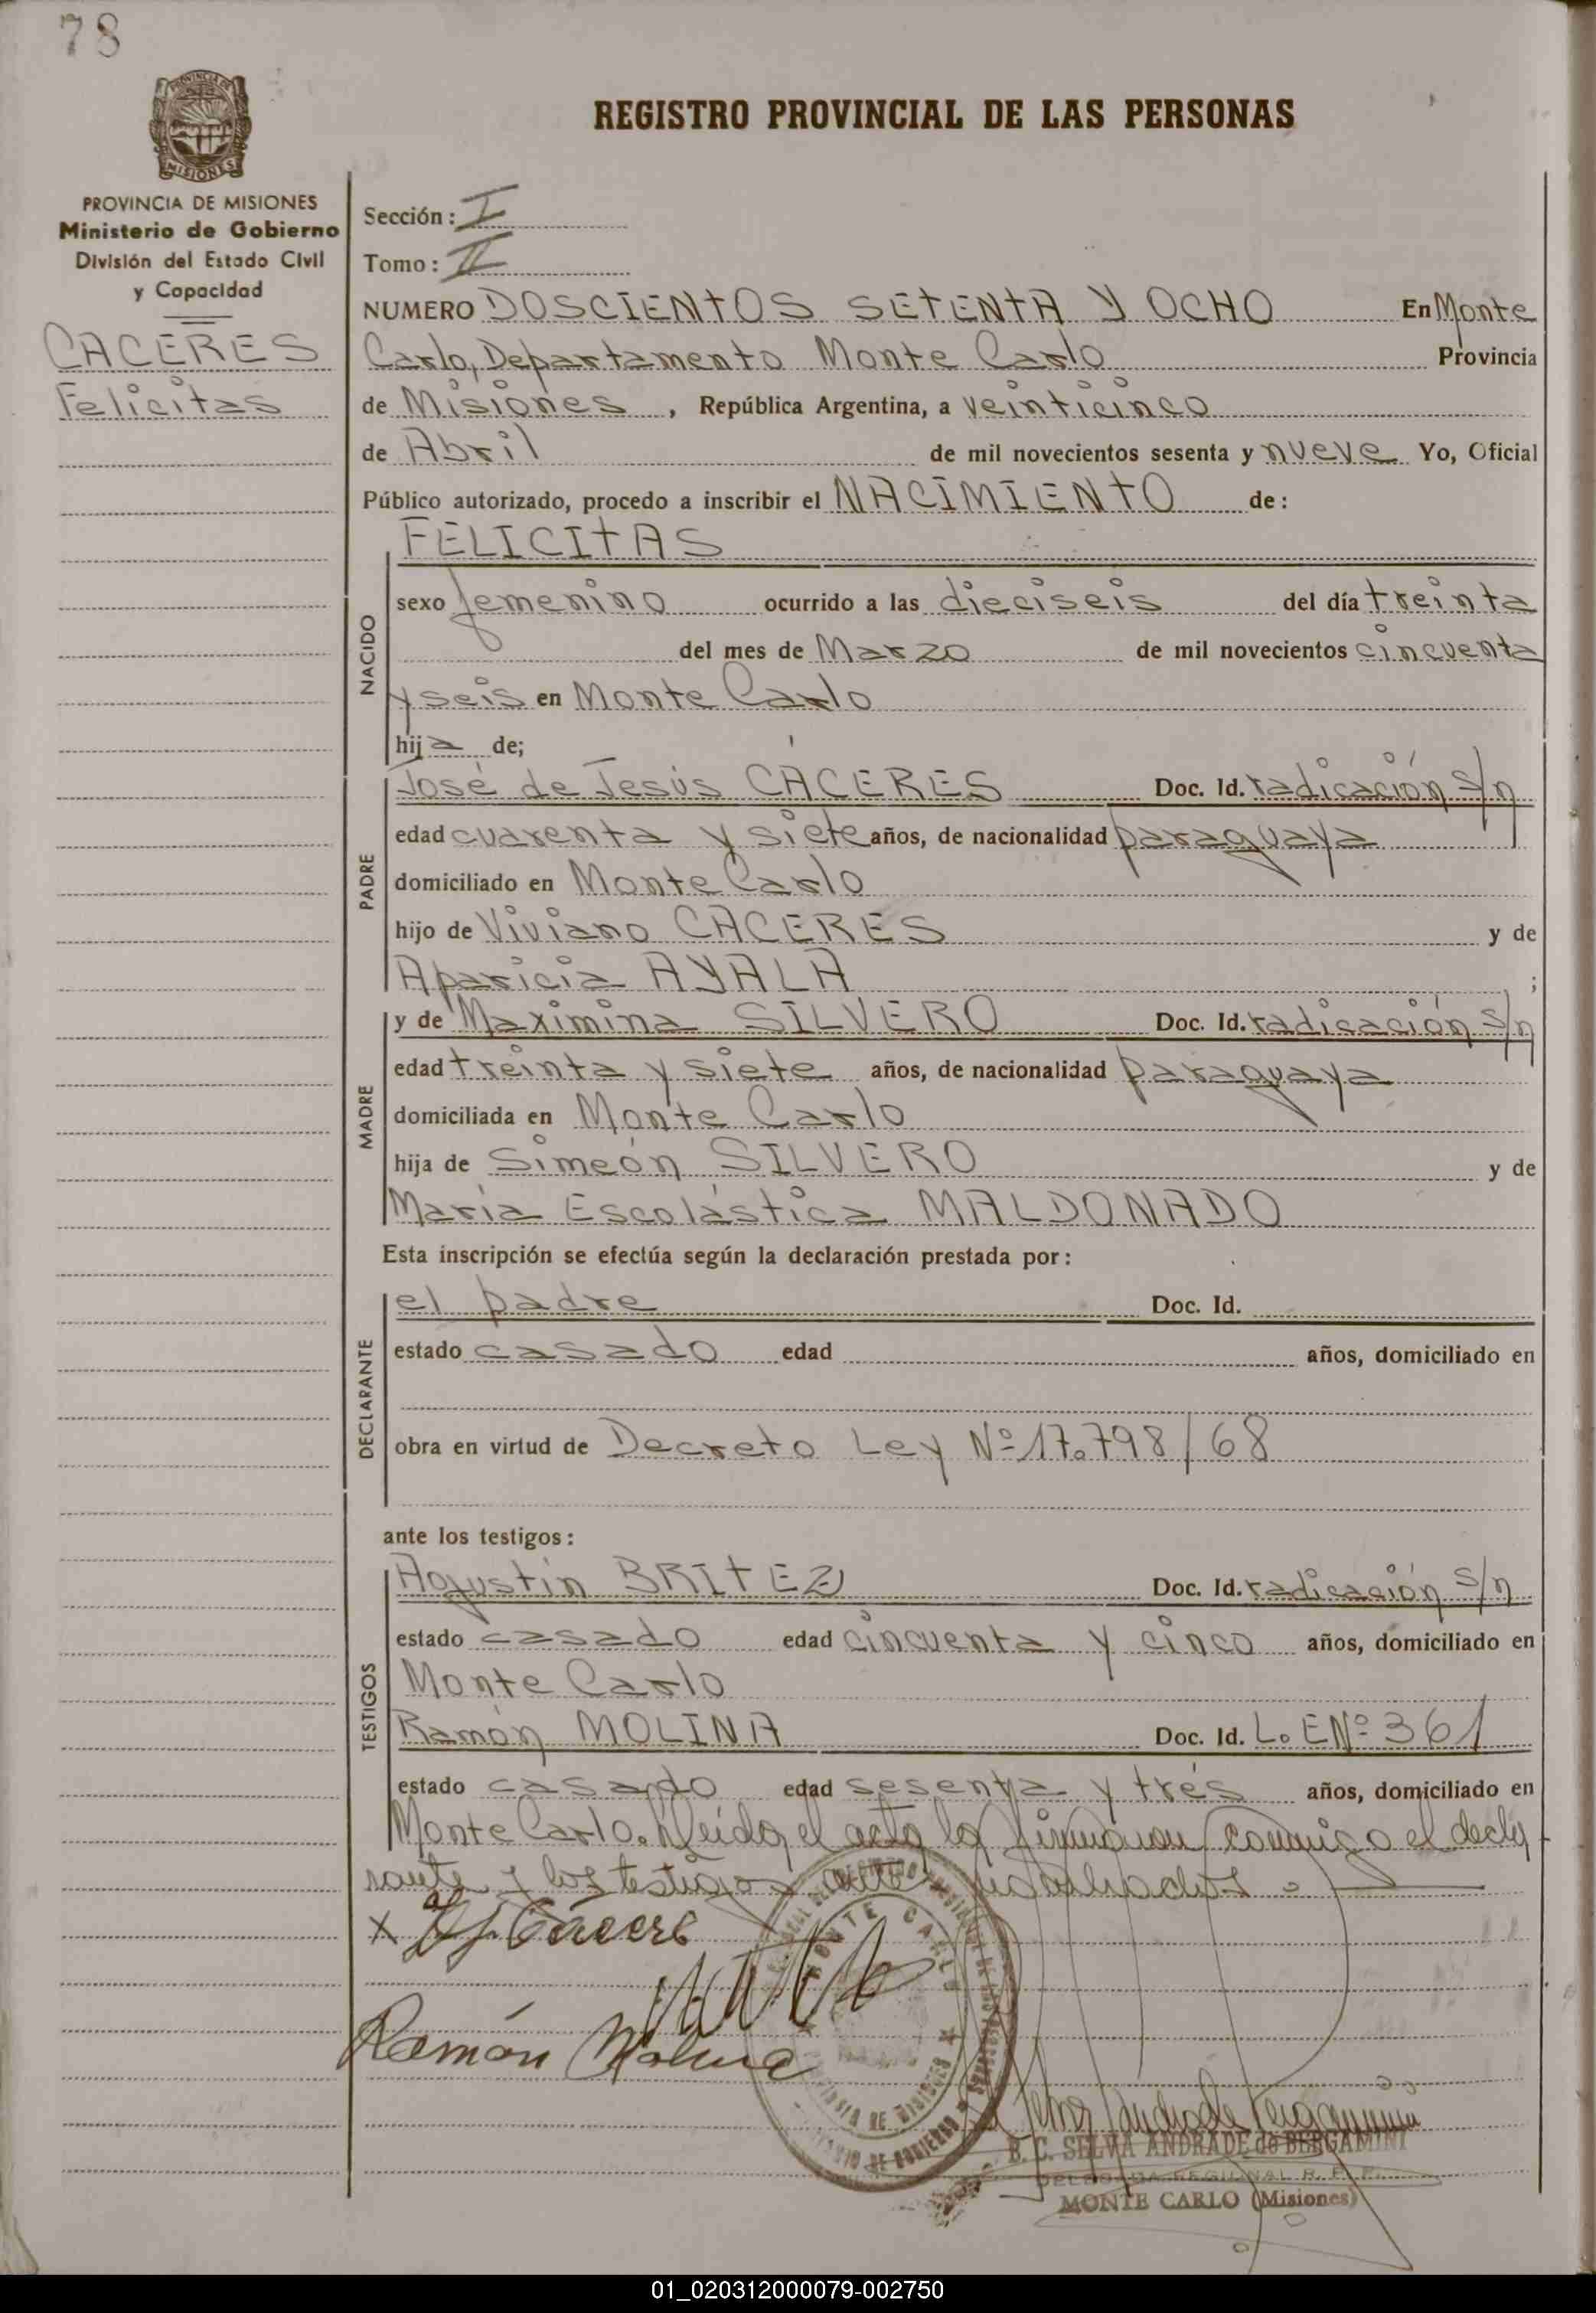 78
PROVINCIA DE
MISIONES
REGISTRO PROVINCIAL DE LAS PERSONAS
PROVINCIA DE MISIONES
Ministerio de Gobierno
División del Estado Civil
y Capacidad
CACERES
Felicitas
Sección: I
Tomo: II
NUMERO DOSCIENTOS SETENTA Y OCHO En Monte
Carlo, Departamento Monte Carlo Provincia
de Misiones, República Argentina, a veinticinco
de Abril de mil novecientos sesenta y nueve Yo, Oficial
Público autorizado, procedo a inscribir el NACIMIENTO de:
FELICITAS
NACIDO
sexo femenino ocurrido a las dieciseis del día treinta
del mes de Marzo de mil novecientos cincuenta
y seis en Monte Carlo
hija de;
PADRE
José de Jesús CÁCERES Doc. Id. radicación s/n
edad cuarenta y siete años, de nacionalidad paraguaya
domiciliado en Monte Carlo
hijo de Viviano CACERES y de
Aparicia AYALA ;
MADRE
y de Maximina SILVERO Doc. Id. radicación s/n
edad treinta y siete años, de nacionalidad paraguaya
domiciliada en Monte Carlo
hija de Simeón SILVERO y de
María Escolástica MALDONADO
Esta inscripción se efectúa según la declaración prestada por:
DECLARANTE
el padre Doc. Id.
estado casado edad años, domiciliado en
obra en virtud de Decreto Ley Nº 17.798/68
ante los testigos:
TESTIGOS
Agustín BRITEZ Doc. Id. radicación s/n
estado casado edad cincuenta y cinco años, domiciliado en
Monte Carlo
Ramón MOLINA Doc. Id. L. E Nº 361
estado casado edad sesenta y trés años, domiciliado en
Monte Carlo. Leida el acta la firmaron conmigo el decla
rante y los testigos
x J. Cáceres
Ramón Molina
MONTE CARLO
PROVINCIA DE MISIONES
MINISTERIO DE GOBIERNO
B. C. SELVA ANDRADE de BERGAMINI
DELEGADA REGIONAL R. P. P.
MONTE CARLO (Misiones)
01_020312000079-002750